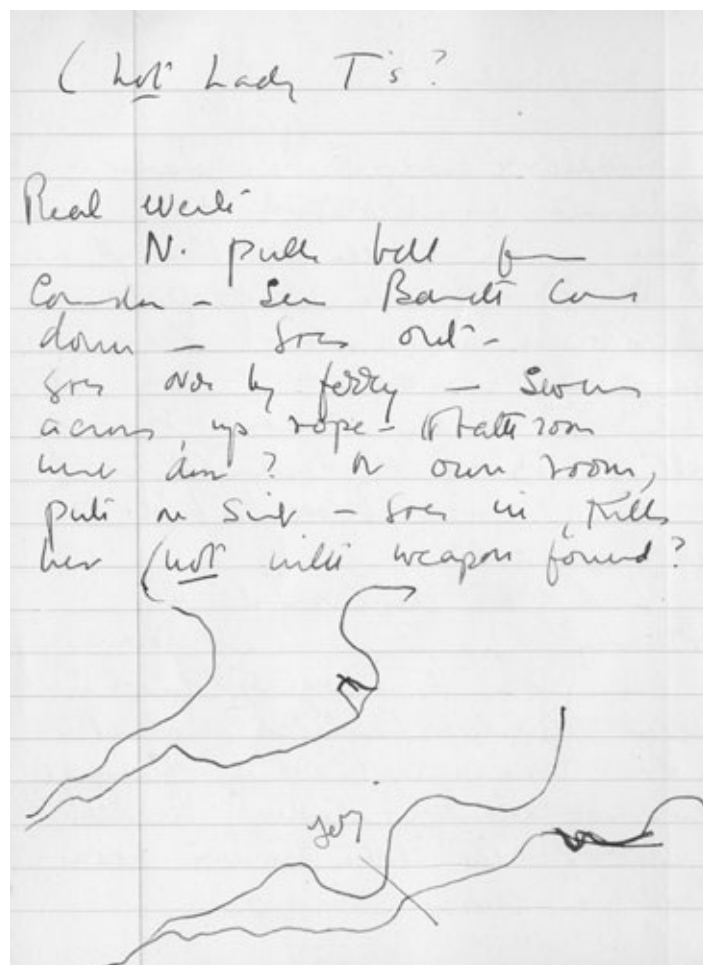 (not Lady T's?
Real
N. pulls bell from
Corridor - sees Barrett come
down - goes out -
goes over by ferry - Swims
across, up rope - (Bathroom
next door? or own room,
puts on suit - goes in, kills
her (not with weapon found?